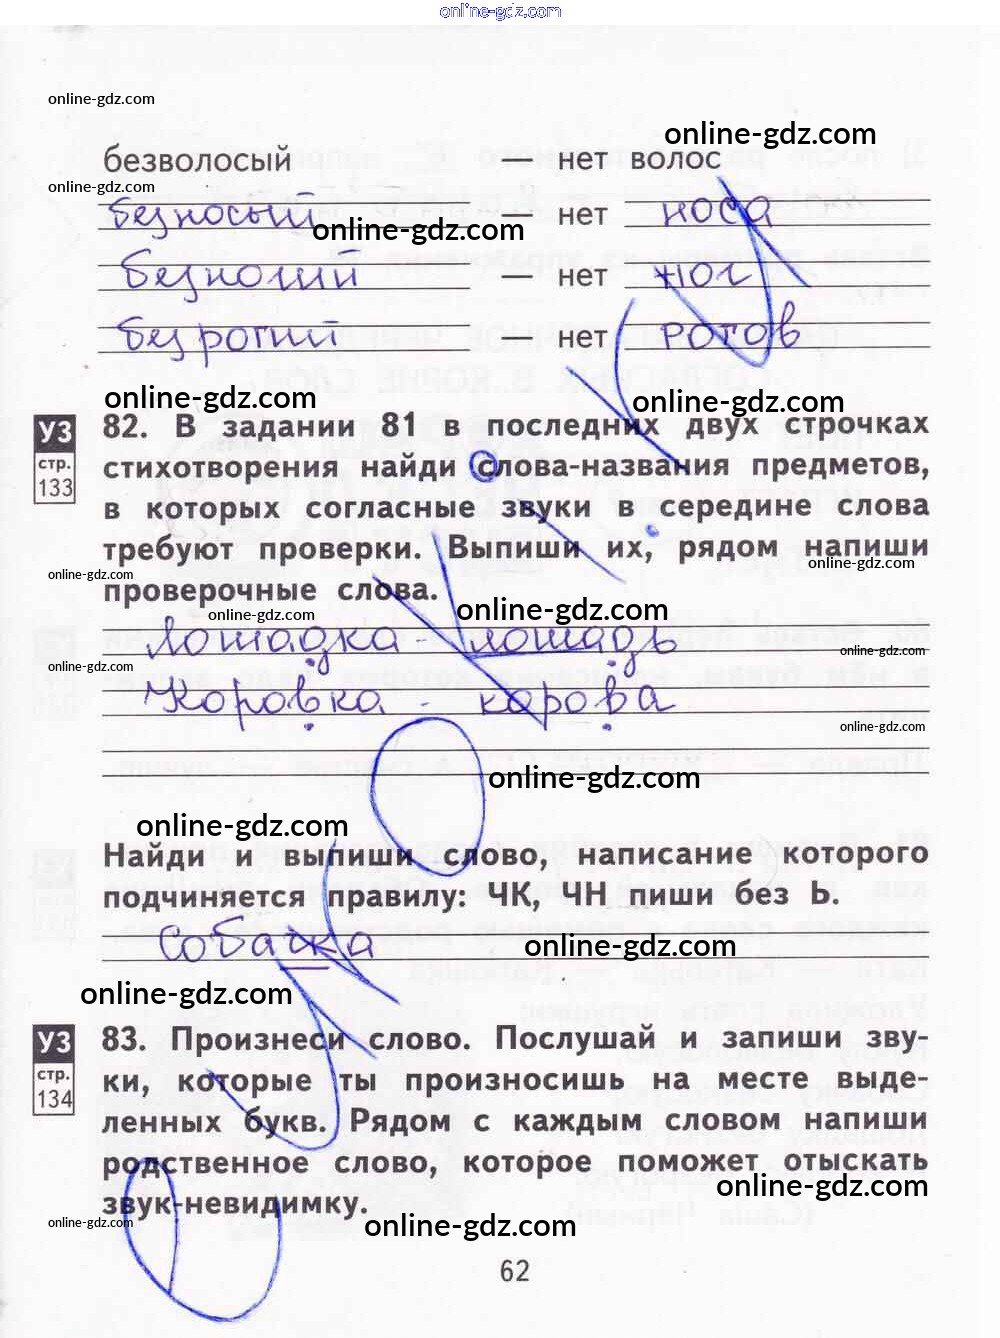 online-gdz.com
online-gdz.com
online-gdz.com
безволосый — нет волос
online-gdz.com
безносый — нет носа
online-gdz.com
безногий — нет ног
безрогий — нет рогов
online-gdz.com
online-gdz.com
УЗ
стр.
133
82. В задании 81 в последних двух строчках
стихотворения найди слова-названия предметов,
в которых согласные звуки в середине слова
требуют проверки. Выпиши их, рядом напиши
online-gdz.com
online-gdz.com
проверочные слова.
online-gdz.com
online-gdz.com
лошадка лошадь
online-gdz.com
online-gdz.com
Коровка - корова
online-gdz.com
online-gdz.com
online-gdz.com
Найди и выпиши слово, написание которого
подчиняется правилу: ЧК, ЧН пиши без Ь.
собачка
online-gdz.com
online-gdz.com
УЗ
стр.
134
83. Произнеси слово. Послушай и запиши зву-
ки, которые ты произносишь на месте выде-
ленных букв. Рядом с каждым словом напиши
родственное слово, которое поможет отыскать
online-gdz.com
звук-невидимку.
online-gdz.com
online-gdz.com
62